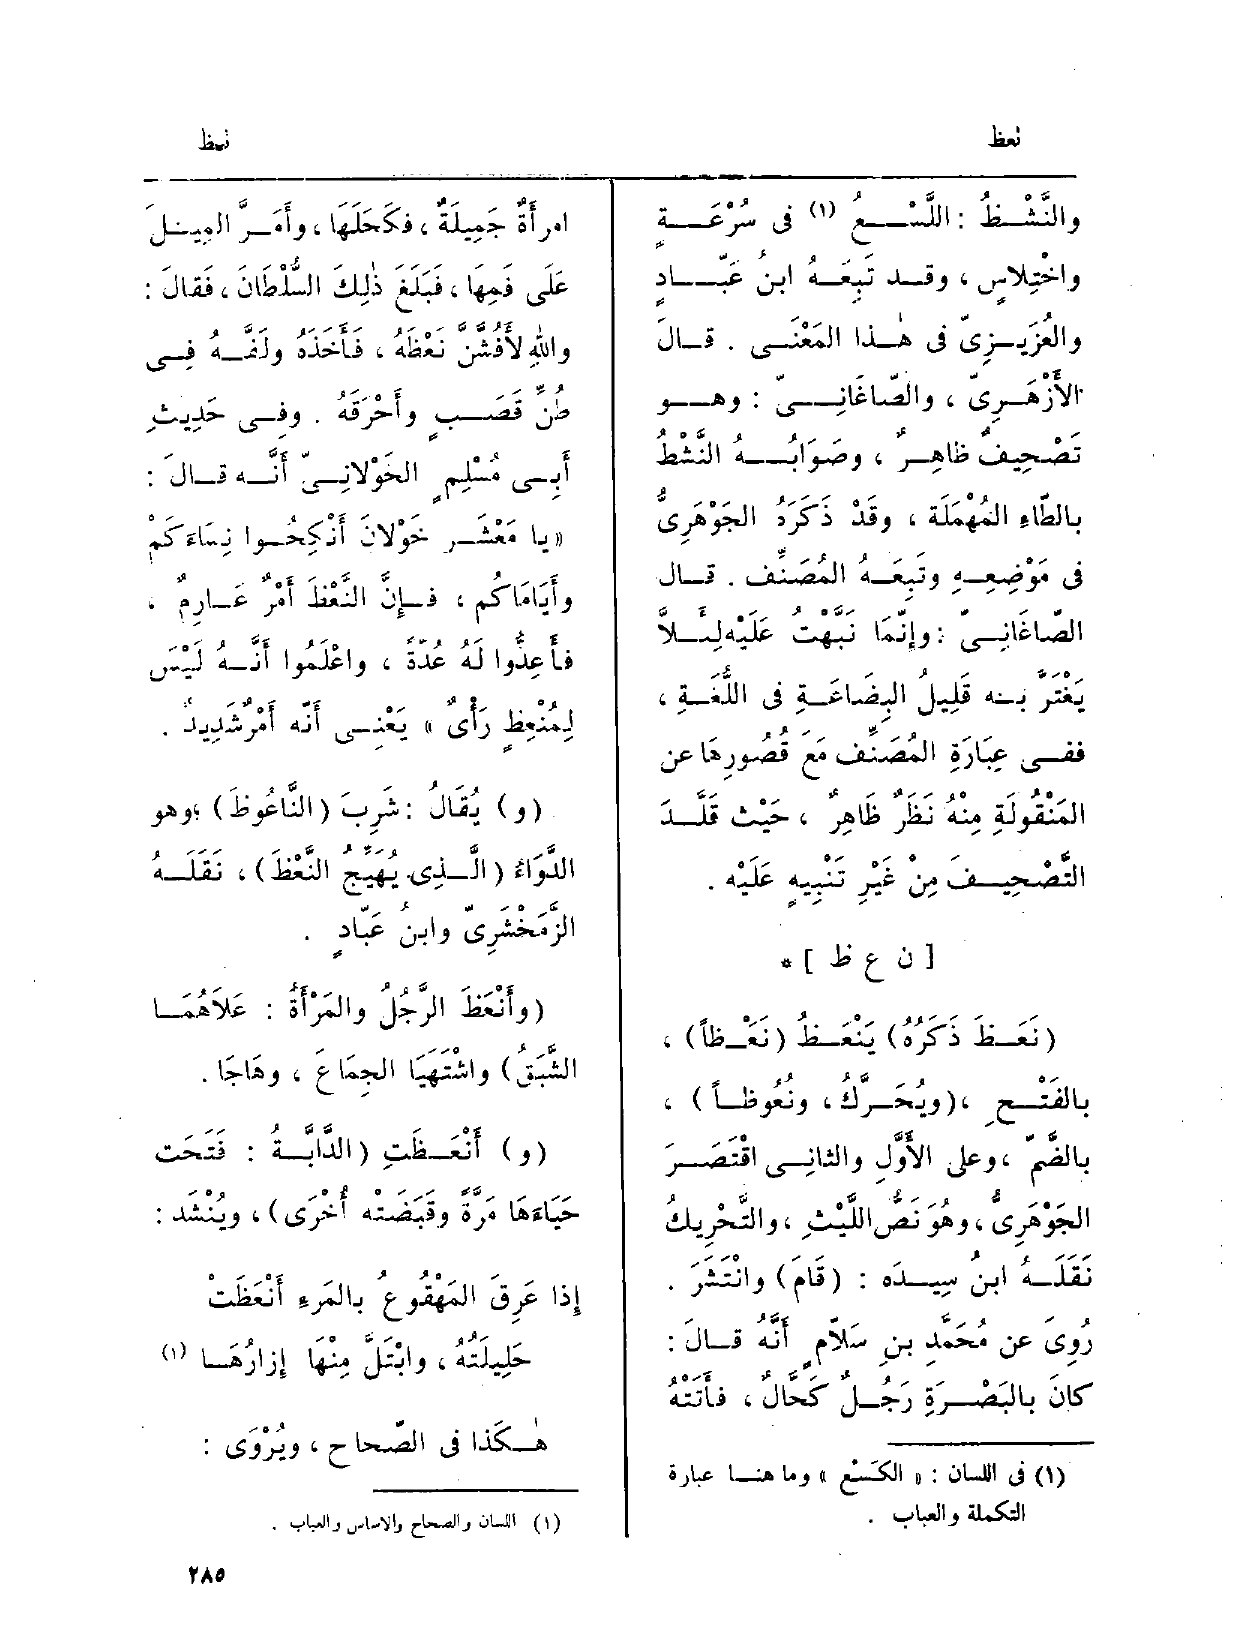 نعظ
نعظ
والنَّشْظُ : اللَّسْعُ (١) فى سُرْعَةٍ
واخْتِلاسٍ ، وقد تَبِعَهُ ابنُ عَبّادٍ
والعُزَيْزِىّ فى هٰذا المَعْنَى . قالَ
الأَزْهَرِىّ ، والصّاغَانِىّ : وهو
تَصْحِيفٌ ظاهِرٌ ، وصَوَابُهُ النَّشْطُ
بالطّاءِ المُهْمَلَة ، وقَدْ ذَكَرَهُ الجَوْهَرِىُّ
فى مَوْضِعِه وتَبِعَهُ المُصَنِّف . قال
الصّاغَانِىّ : وإنّمَا نَبَّهْتُ عَلَيْه لِئَلاَّ
يَغْتَرَّ به قَلِيلُ البِضَاعَةِ فى اللُّغَةِ ،
ففى عِبَارَةِ المُصَنِّف مَعَ قُصُورِهَا عن
المَنْقُولَةِ مِنْهُ نَظَرٌ ظَاهِرٌ ، حَيْثُ قَلَّدَ
التَّصْحِيفَ مِنْ غَيْرِ تَنْبِيهٍ عَلَيْه .
[ ن ع ظ ] *
(نَعَظَ ذَكَرُهُ) يَنْعَظُ (نَعْظاً) ،
بالفَتْحِ ، (ويُحَرَّكُ ، ونُعُوظاً) ،
بالضَّمّ ، وعلى الأَوَّلِ والثانِى اقْتَصَرَ
الجَوْهَرِىُّ ، وهُوَ نَصُّ اللَّيْثِ ، والتَّحْرِيكُ
نَقَلَهُ ابنُ سِيدَه : (قَامَ) وانْتَشَرَ .
رُوِىَ عن مُحَمَّدِ بنِ سَلاّمٍ أَنَّهُ قالَ :
كانَ بالبَصْرَةِ رَجُلٌ كَحَّالٌ ، فأَتَتْهُ
(١) فى اللسان : « الكَسْع » وما هنا عبارة
التكملة والعباب .
امرأَةٌ جَمِيلَةٌ ، فكَحَلَهَا ، وأَمَرَّ المِيلَ
عَلَى فَمِهَا ، فَبَلَغَ ذٰلِكَ السُّلْطانَ ، فَقالَ :
واللهِ لأَفُشَّنَّ نَعْظَهُ ، فأَخَذَهُ ولَفَّهُ فِى
طُنِّ قَصَبٍ وأَحْرَقَهُ . وفى حَدِيثِ
أَبِى مُسْلِمٍ الخَوْلانِىّ أَنَّه قالَ :
« يا مَعْشَر خَوْلانَ أَنْكِحُوا نِسَاءَكُمْ
وأَيَامَاكُم ، فإنَّ النَّعْظَ أَمْرٌ عَارِمٌ ،
فأَعِدُّوا لَهُ عُدَّةً ، واعْلَمُوا أَنَّهُ لَيْسَ
لِمُنْعِظٍ رَأْىٌ » يَعْنِى أَنّه أَمْرٌ شَدِيدٌ .
(و) يُقَالُ : شَرِبَ (النَّاعُوظَ) ؛ وهو
الدَّوَاءُ (الَّذِى يُهَيِّجُ النَّعْظَ) ، نَقَلَهُ
الزَّمَخْشَرِىّ وابنُ عَبّادٍ .
(وأَنْعَظَ الرَّجُلُ والمَرْأَةُ : عَلاَهُمَا
الشَّبَقُ) واشْتَهَيَا الجِمَاعَ ، وهَاجَا .
(و) أَنْعَظَتِ (الدَّابَّةُ : فَتَحَت
حَيَاءَهَا مَرَّةً وقَبَضَتْه أُخْرَى) ، ويُنْشَد :
إذا عَرِقَ المَهْقُوعُ بالمَرءِ أَنْعَظَتْ
حَلِيلَتُهُ ، وابْتَلَّ مِنْهَا إزارُهَا (١)
هٰكَذا فى الصّحاح ، ويُرْوَى :
(١) اللسان والصحاح والاساس والعباب .
٢٨٥